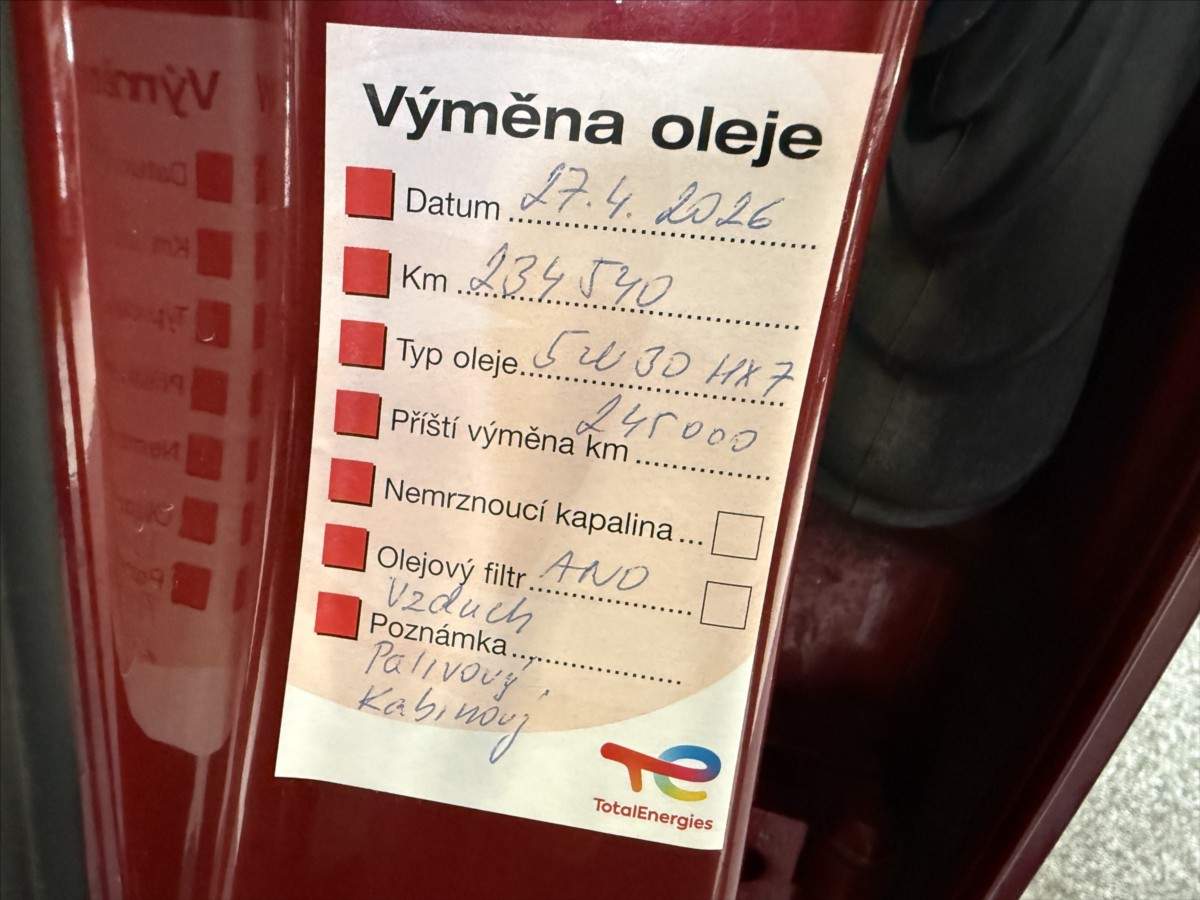 Výměna oleje
Datum 27.4.2026
Km 234 540
Typ oleje 5W30 HX7
Příští výměna km 245 000
Nemrznoucí kapalina...
Olejový filtr ANO
Vzduch
Poznámka
Palivový,
Kabinový
TotalEnergies